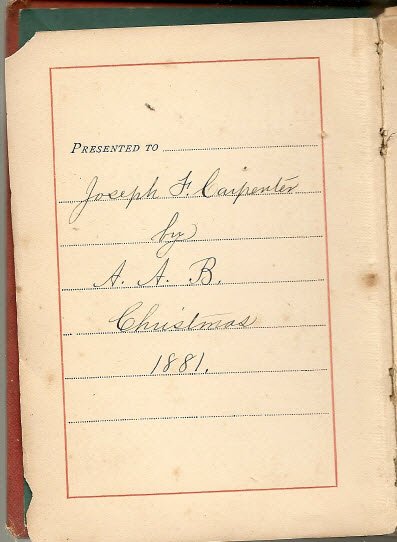 PRESENTED TO
Joseph F. Carpenter
by
A. A. B.
Christmas
1881.